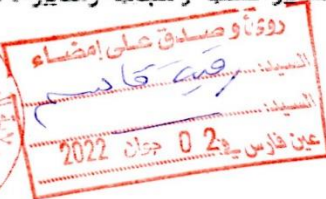 روئ و صدق على إمضاء
السيد: رقيق قاسم
السيد:
عين فارس في 02 جوان 2022